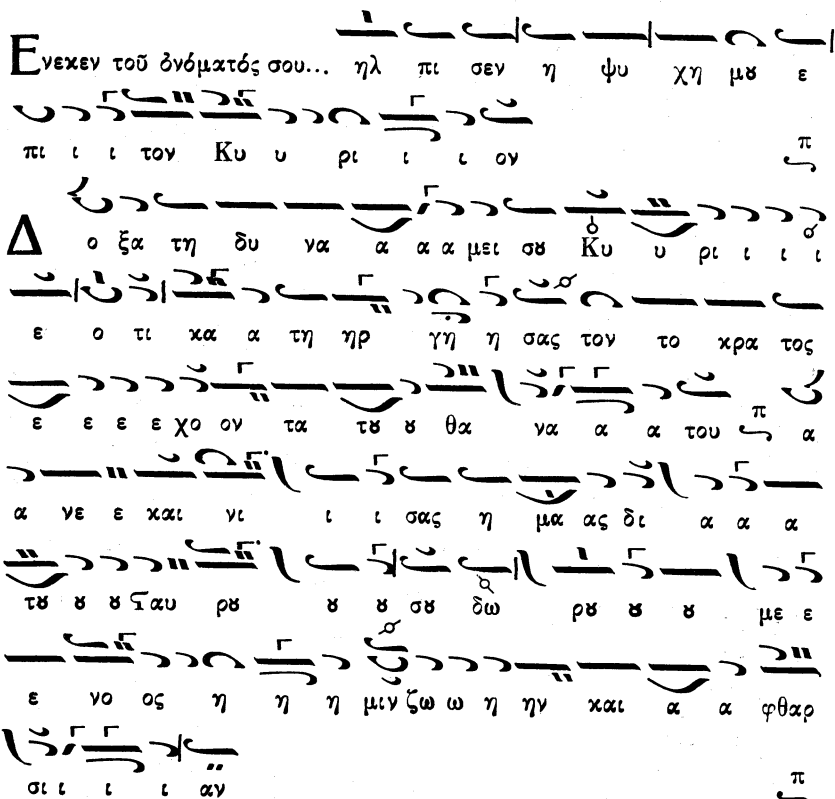 Ενεκεν τοῦ ὀνόματός σου... ηλ πι σεν η ψυ χη μȣ ε
πι ι ι τον Κυ υ ρι ι ι ον π
Δ ο ξα τη δυ να α α α μει σȣ Κυ υ ρι ι ι ι
ε ο τι κα α τη ηρ γη η σας τον το κρα τος
ε ε ε ε χο ον τα τȣ ȣ θα να α α του π α
α νε ε και νι ι ι σας η μα ας δι α α α
τȣ ȣ ȣ ϛαυ ρȣ ȣ ȣ σȣ δω ρȣ ȣ ȣ με ε
ε νο ος η η η μιν ζω ω η ην και α α φθαρ
σι ι ι ι αν π